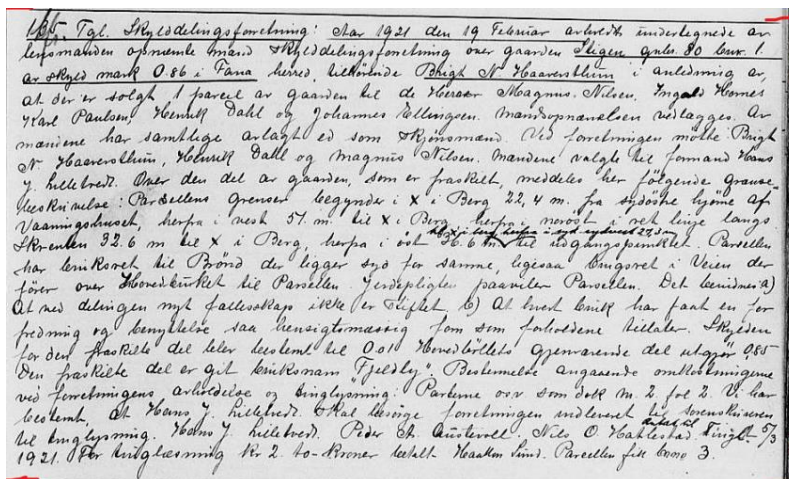 135. Tgl. Skylddelingsforretning: Aar 1921 den 19 Februar avholdt undertegnede av
lensmanden opnævnte mænd skylddelingsforretning over gaarden Stigen gnbr. 80 bnr. 1.
av skyld mark 0.86 i Fana herred, tilhørende Brigt N. Haaversthun i anledning av,
at der er solgt 1 parcel av gaarden til de Herrer Magnus Nilsen, Ingald Hornes
Karl Paulsen, Henrik Dahl og Johannes Ellingsen. Mandsopnævnelsen vedlægges. Av
mændene har samtlige avlagt ed som skjønsmænd. Ved forretningen møtte Brigt
N. Haaversthun, Henrik Dahl og Magnus Nilsen. Mændene valgte til formand Hans
J. Lilletvedt. Over den del av gaarden, som er fraskilt, meddeles her følgende grænse-
beskrivelse: Parsellens grenser begynder i x i Berg 22,4 m. fra sydøstre hjørne af
Vaaningshuset, herfra i vest 51 m. til x i Berg, herfra i nerøst i ret linje langs
Skrenten 32.6 m til x i Berg, herfra i øst 36.6 m til x i berg herfra i syd sydvest 27,3 m til udgangspunktet. Parsellen
har bruksret til Brønd der ligger syd for samme, ligesaa brugsret i Veien der
fører over Hovedbruket til Parsellen. Jerdepligten paaviler Parsellen. Det bevidnes a)
At ved delingen nyt fællesskap ikke er stiftet, b) At hvert bruk har faat en for
fredning og benyttelse saa hensigtsmæssig form som forholdene tillater. Skylden
for den fraskilte del blev bestemt til 0.01 Hovedbøllets gjenværende del utgjør 0.85
Den fraskilte del er git bruksnavn "Fjeldly". Bestemmelse angaaende omkostningerne
ved forretningens avholdelse og tinglysning: Parterne o.s.v som dok m. 2. fol 2. Vi har
bestemt at Hans J. Lilletvedt skal besørge forretningen indlevert til sorenskriveren
til tinglysning. Hans J. Lilletvedt. Peder A. Austevoll. Nils O. Hatlestad. Tingl. 5/3
1921. For tinglæsning kr 2 to-kroner betalt Haakon Lund. Parcellen fik bno 3.